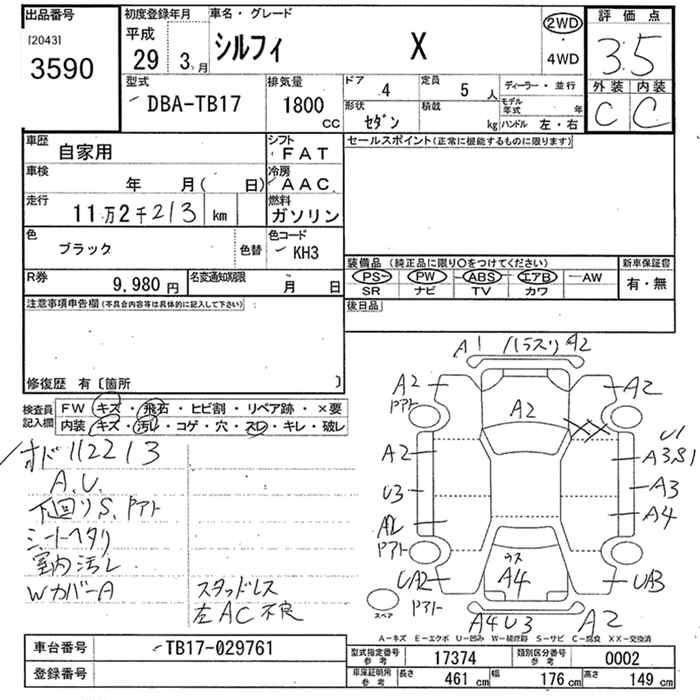 出品番号
[2043]
3590
初度登録年月
平成
29 3 月
車名・グレード
シルフィ X
2WD
・
4WD
評価点
3.5
外装 内装
C C
型式
DBA-TB17
排気量
1800
CC
ドア 4
定員 5 人
形状 セダン
積載 kg
ディーラー・並行
モデル年式 年
ハンドル 左・右
車歴
自家用
シフト
FAT
車検
年 月( 日)
冷房
AAC
走行
11万2千213 km
燃料
ガソリン
色
ブラック
色替
色コード
KH3
R券
9,980 円
名変通知期限
月 日
注意事項申告欄(不具合内容等は具体的に記入して下さい)
修復歴 有〔箇所 〕
セールスポイント(正常に機能するものに限ります)
装備品(純正品に限り○をつけてください)
PS PW ABS エアB AW
SR ナビ TV カワ
新車保証書
有・無
後日品
検査員
記入欄
FW キズ・飛石・ヒビ割・リペア跡・×要
内装 キズ・汚レ・コゲ・穴・スレ・キレ・破レ
オド112213
A.U.
下回りS、Pアト
シートヘタリ
室内汚レ
WカバーA
スタッドレス
左AC不良
A1 バラスリ A2
A2 Pアト
A2
A2
A2
U3
A2 Pアト
UA2 Pアト
U1
A3S1
A3
A4
UA3
ウス
A4
A4U3
A2
スペア
A-キズ E-エクボ U-凹み W-補修跡 S-サビ C-腐食 XX-交換済
車台番号 TB17-029761
登録番号
型式指定番号 参考 17374
類別区分番号 参考 0002
車庫証明用 参考 長さ 461 cm 幅 176 cm 高さ 149 cm